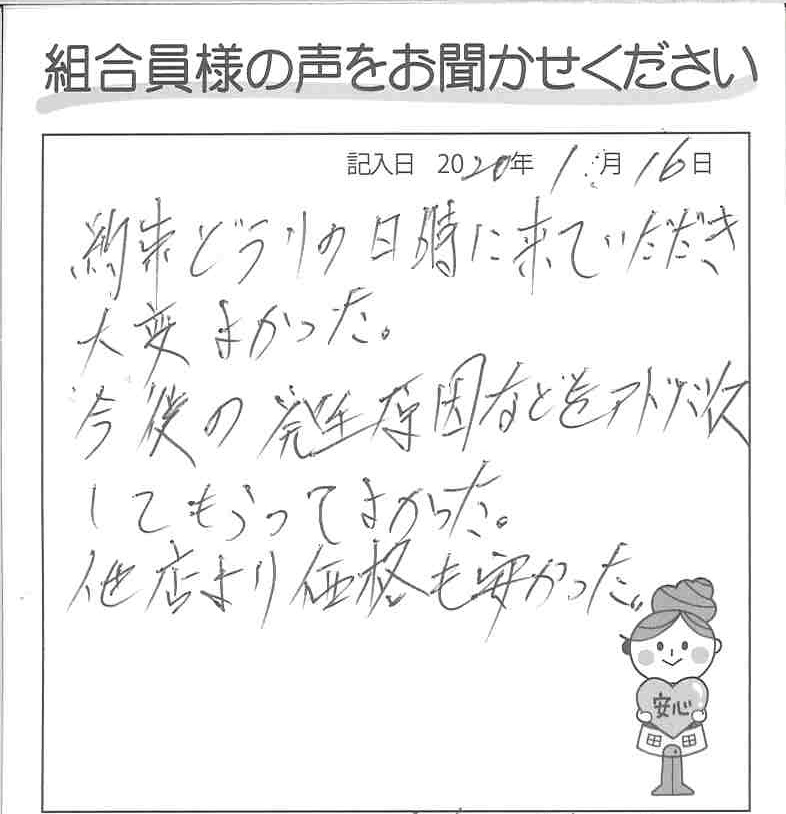 組合員様の声をお聞かせください
記入日 2020年 1月 16日
約束どうりの日時に来ていただき
大変よかった。
今後の発生原因などをアドバイス
してもらってよかった。
他店より価格も安かった。
安心